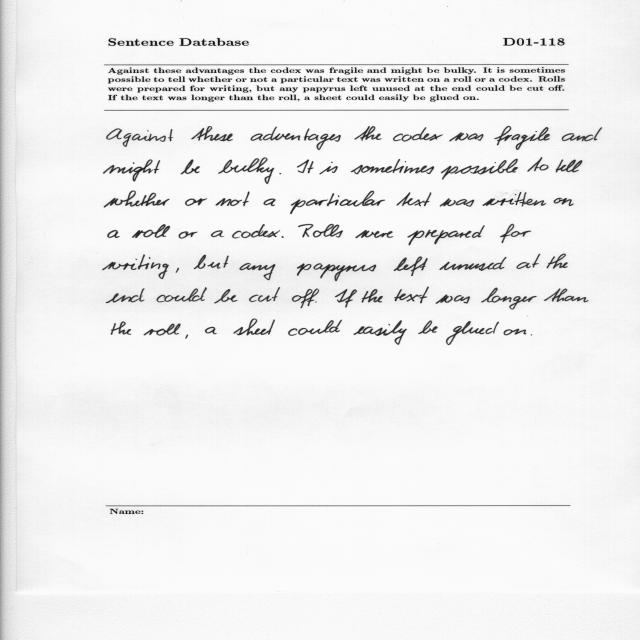 Sentence Database D01-118
Against these advantages the codex was fragile and might be bulky. It is sometimes
possible to tell whether or not a particular text was written on a roll or a codex. Rolls
were prepared for writing, but any papyrus left unused at the end could be cut off.
If the text was longer than the roll, a sheet could easily be glued on.
Against these adventages the codex was fragile and
might be bulky. It is sometimes possible to tell
whether or not a particular text was written on
a roll or a codex. Rolls were prepared for
writing, but any papyrus left unused at the
end could be cut off. If the text was longer than
the roll, a sheet could easily be glued on.
Name: